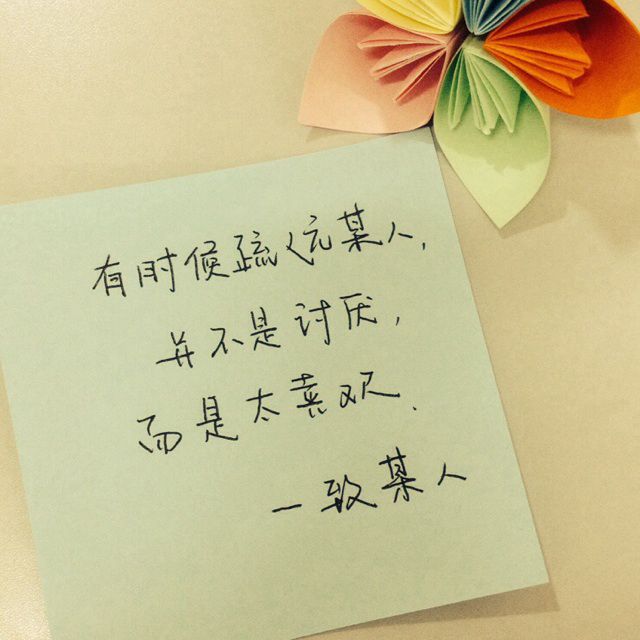 有时候疏远某人，
并不是讨厌，
而是太喜欢．
一致某人